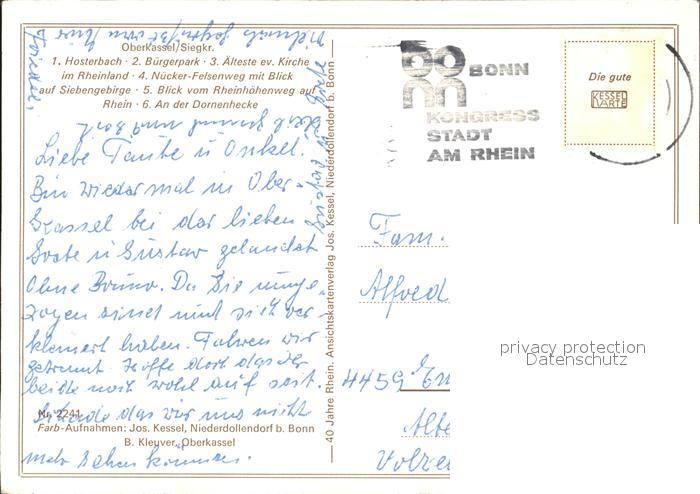 Oberkassel/Siegkr.
1. Hosterbach · 2. Bürgerpark · 3. Älteste ev. Kirche
im Rheinland · 4. Nücker-Felsenweg mit Blick
auf Siebengebirge · 5. Blick vom Rheinhöhenweg auf
Rhein · 6. An der Dornenhecke
Liebe Tante u Onkel.
Bin wieder mal in Ober-
kassel bei der lieben
u Gustav gelandet
Ohne Bruno. Da Sie umge-
zogen sind und sich ver-
kleinert haben. Fahren wir
getrennt. Hoffe doch das Ihr
beide noch wohl auf seit.
Schade das wir uns nicht
mehr sehen können.
Nr. 2241
Farb-Aufnahmen: Jos. Kessel, Niederdollendorf b. Bonn
B. Kleuver, Oberkassel
40 Jahre Rhein. Ansichtskartenverlag Jos. Kessel, Niederdollendorf b. Bonn
BONN
KONGRESS
STADT
AM RHEIN
Die gute
KESSEL
KARTE
Fam.
Alfred
4459
privacy protection
Datenschutz